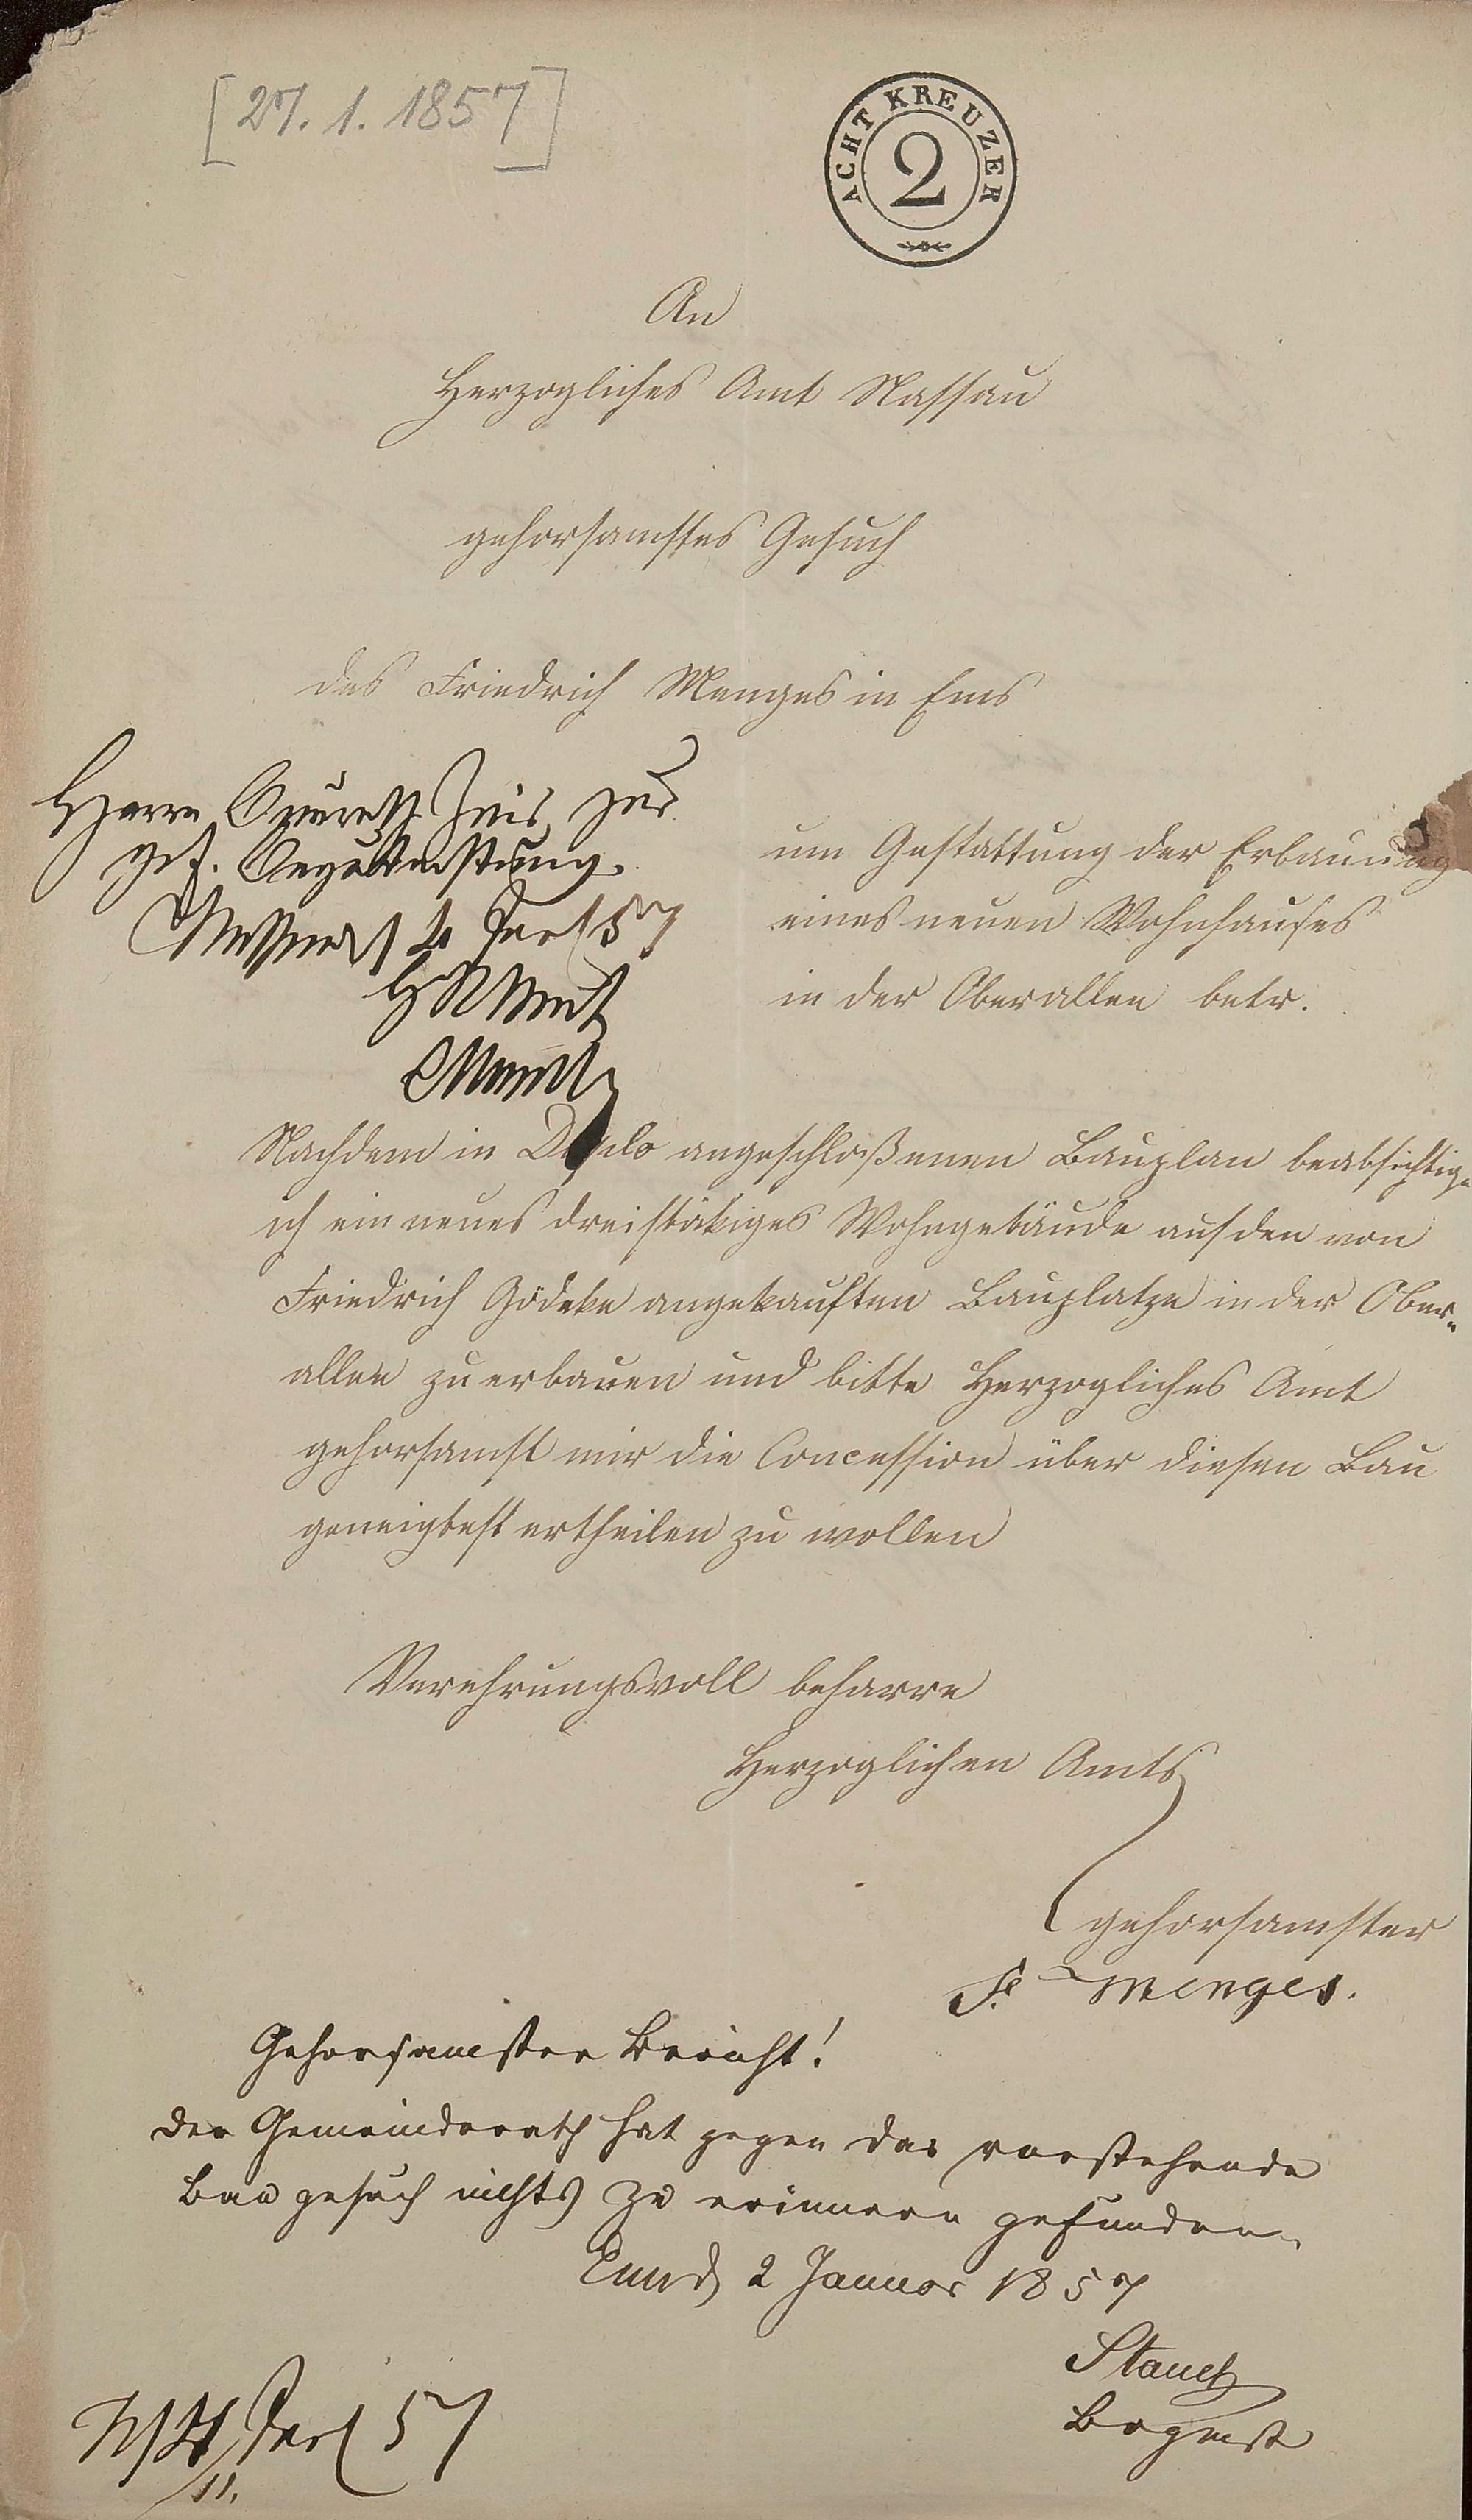 [27. 1. 1857]
ACHT KREUZER
2
An
Herzogliches Amt Nassau
gehorsamstes Gesuch
des Friedrich Menges in Ems
Herrn zur
gef. Begutachtung.
Nassau 4 Jan 57
HNAmt
um Gestattung der Erbauung
eines neuen Wohnhauses
in der Oberallee betr.
Nachdem in Duplo angeschloßenen Bauplan beabsichtige
ich ein neues dreistökiges Wohngebäude auf den von
Friedrich Gödeke angekauften Bauplatze in der Ober„
allee zu erbauen und bitte Herzogliches Amt
gehorsamst mir die Concession über diesen Bau
geneigtest ertheilen zu wollen
Verehrungsvoll beharre
Herzoglichen Amts
gehorsamster
Fr Menges.
Gehorsamster Bericht!
Der Gemeinderath hat gegen das vorstehende
Baugesuch nichts zu erinnern gefunden.
Ems d 2 Januar 1857
Stauch
Bgmst
Jan 57
11.